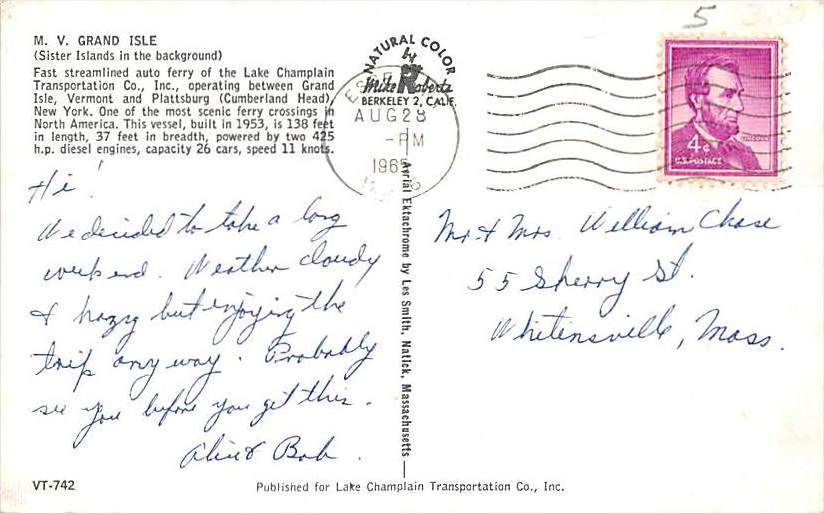 M. V. GRAND ISLE
(Sister Islands in the background)
Fast streamlined auto ferry of the Lake Champlain
Transportation Co., Inc., operating between Grand
Isle, Vermont and Plattsburg (Cumberland Head),
New York. One of the most scenic ferry crossings in
North America. This vessel, built in 1953, is 138 feet
in length, 37 feet in breadth, powered by two 425
h.p. diesel engines, capacity 26 cars, speed 11 knots.
Hi!
We decided to take a long
week end. Weather cloudy
& hazy but enjoying the
trip any way. Probably
see you before you get this.
Alice & Bob.
VT-742
NATURAL COLOR
Mike Roberts
BERKELEY 2, CALIF.
AUG 28
-PM
1965
Aerial Ektachrome by Les Smith, Natick, Massachusetts
5
4¢
U.S. POSTAGE
Mr. & Mrs. William Chase
55 Sherry St.
Whitinsville, Mass.
Published for Lake Champlain Transportation Co., Inc.